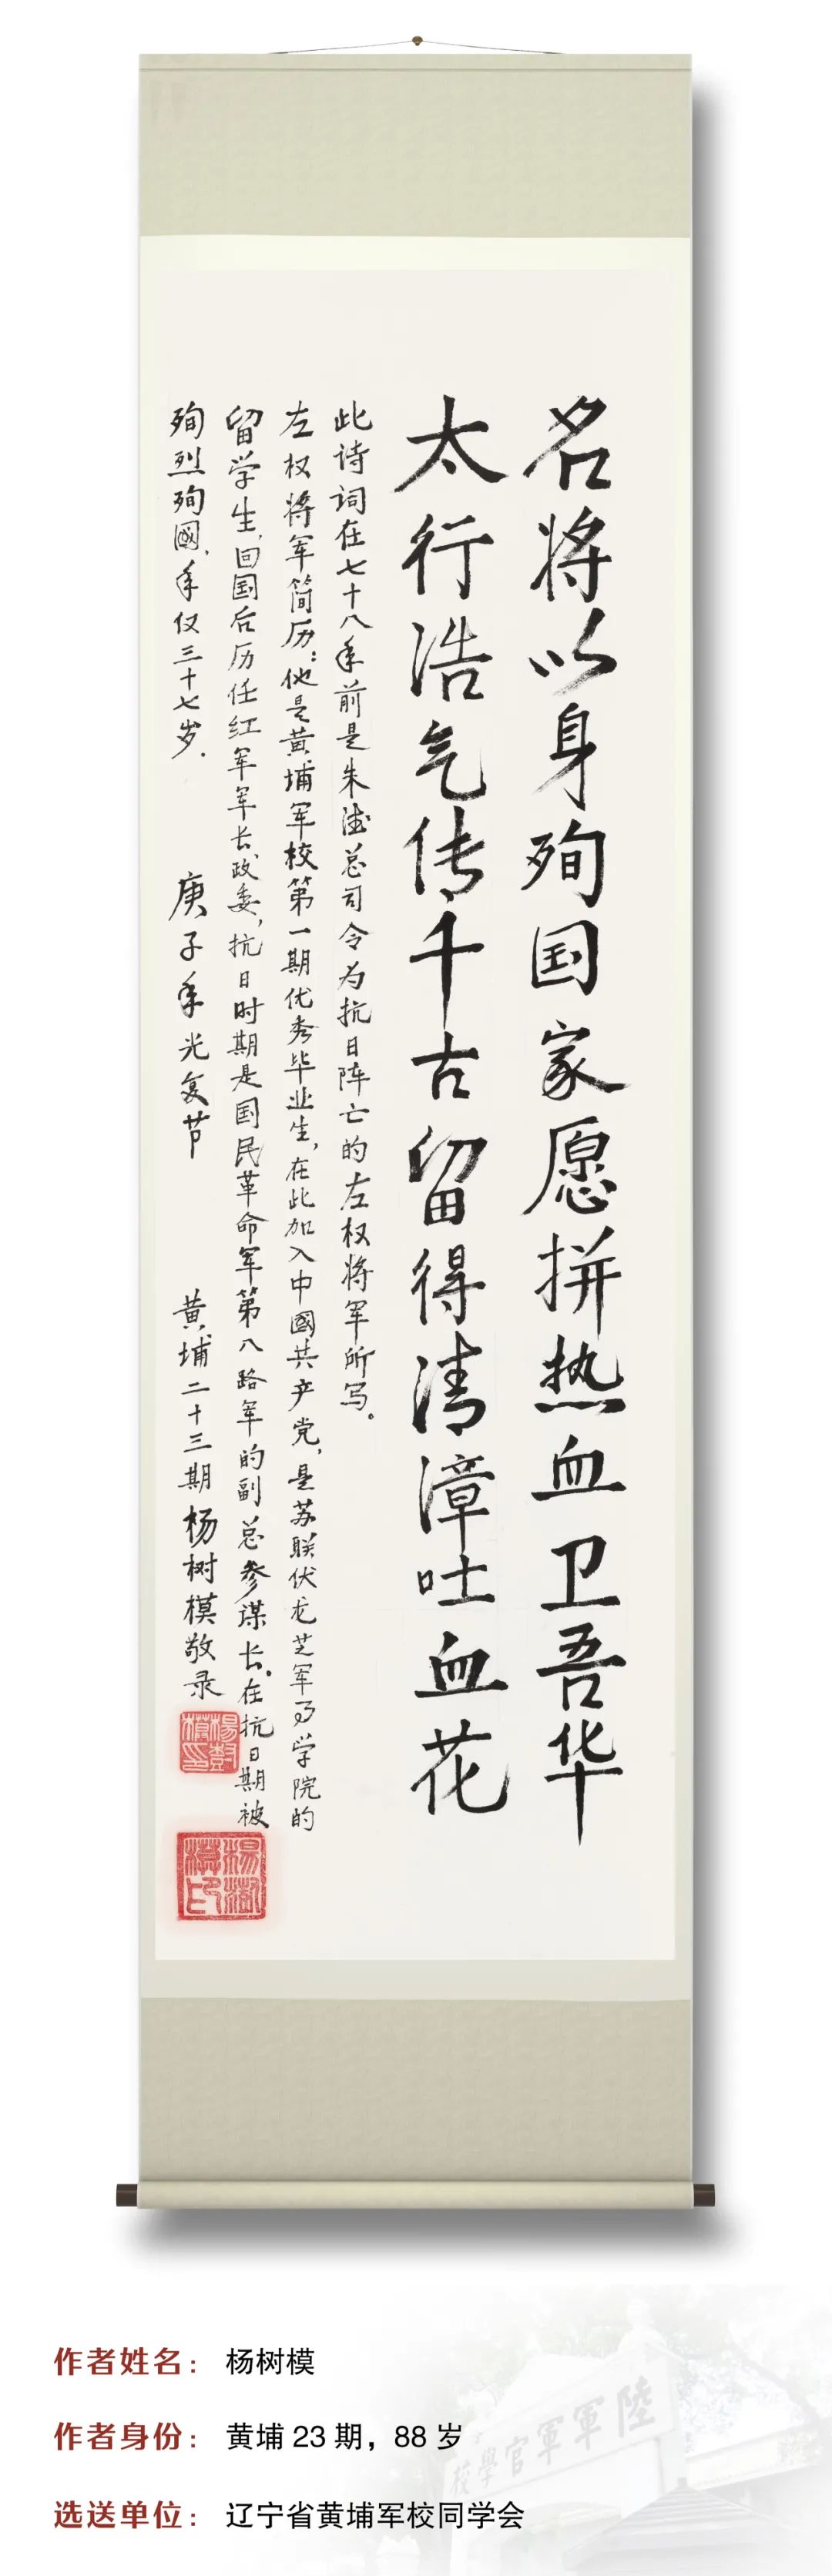 名将以身殉国家愿拼热血卫吾华
太行浩气传千古留得清漳吐血花
此诗词在七十八年前是朱德总司令为抗日阵亡的左权将军所写。
左权将军简历：他是黄埔军校第一期优秀毕业生，在此加入中國共产党，是苏联伏龙芝军事学院的
留学生，回国后历任红军军长政委，抗日时期是国民革命军第八路军的副总参谋长。在抗日期被
殉烈殉國，年仅三十七岁．
庚子年光复节
黄埔二十三期杨树模敬录
楊樹模印
楊樹模印
陸軍軍官學校
作者姓名：杨树模
作者身份：黄埔 23 期，88 岁
选送单位：辽宁省黄埔军校同学会